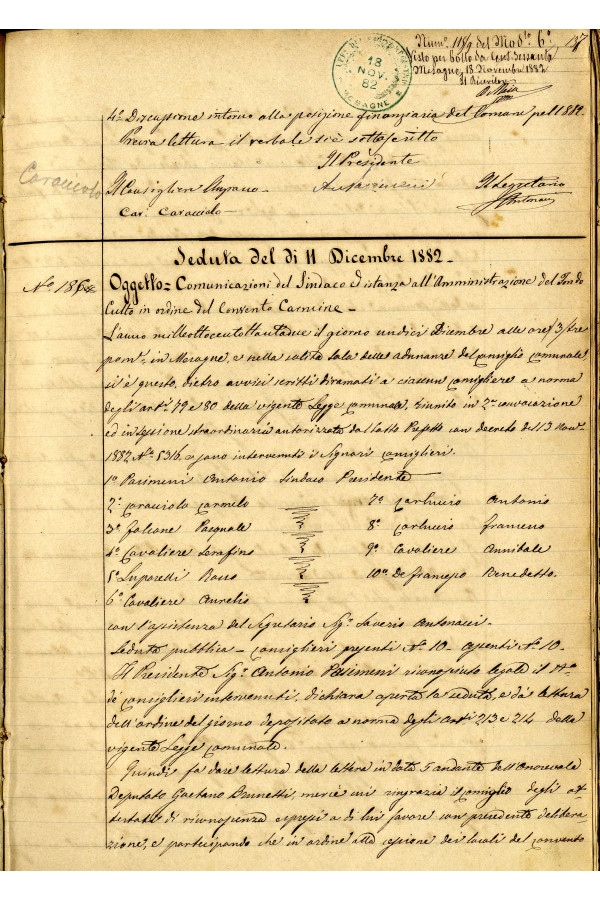 Num.º 118/9 del Mod.lo 6º 137
Visto per bollo da Cent. Sessanta
Mesagne, 18 Novembre 1882
Il Ricevitore
18
NOV.
82
MESAGNE
4º Discussione intorno alla posizione finanziaria del Comune pel 1882.
Previa lettura il verbale si è sottoscritto
Il Presidente
Caracciolo
Il Consigliere Anziano Il Segretario
Car. Caracciolo
Seduta del dì 11 Dicembre 1882
Nº 186
Oggetto = Comunicazioni del Sindaco ed istanza all'Amministrazione del Fondo
Culto in ordine del Convento Carmine
L'anno milleottocentottantadue il giorno undici Dicembre alle ore 3 1/2 pre
pom.e, in Mesagne, e nella solita sala delle adunanze del Consiglio comunale
si è questo, dietro avvisi scritti diramati a ciascun consigliere a norma
degli art.i 79 e 80 della vigente Legge comunale, riunito in 2ª convocazione
ed in sessione straordinaria autorizzata dal Sotto Prefetto con decreto del 13 Nov.
1882 Nº 5316, e sono intervenuti i Signori consiglieri.
1º Pasimeni Antonio Sindaco Presidente
2º Caracciolo Carmelo 7º Carluccio Antonio
3º Falcone Pasquale 8º Carluccio Francesco
4º Cavaliere Serafino 9º Cavaliere Annibale
5º Luparelli Rocco 10º De Francesco Benedetto
6º Cavaliere Aurelio
con l'assistenza del Segretario Sig.r Saverio Antonucci.
Seduta pubblica - consiglieri presenti Nº 10 - assenti Nº 10.
Il Presidente Sig.r Antonio Pasimeni riconosciuto legale il Nº
dé consiglieri intervenuti, dichiara aperta la seduta, e dà lettura
dell'ordine del giorno depositato a norma degli Art.i 213 e 214 della
vigente Legge comunale.
Quindi fa dare lettura della lettera in data 5 andante dell'Onorevole
Deputato Gaetano Brunetti, mercè cui ringrazia il consiglio degli at-
testati di riconoscenza espressi a di lui favore con precedente delibera
zione, e partecipando che in ordine alla cessione dei locali del convento